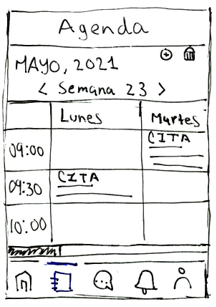 Agenda
MAYO, 2021
< Semana 23 >
Lunes Martes
09:00 CITA
09:30 CITA
10:00